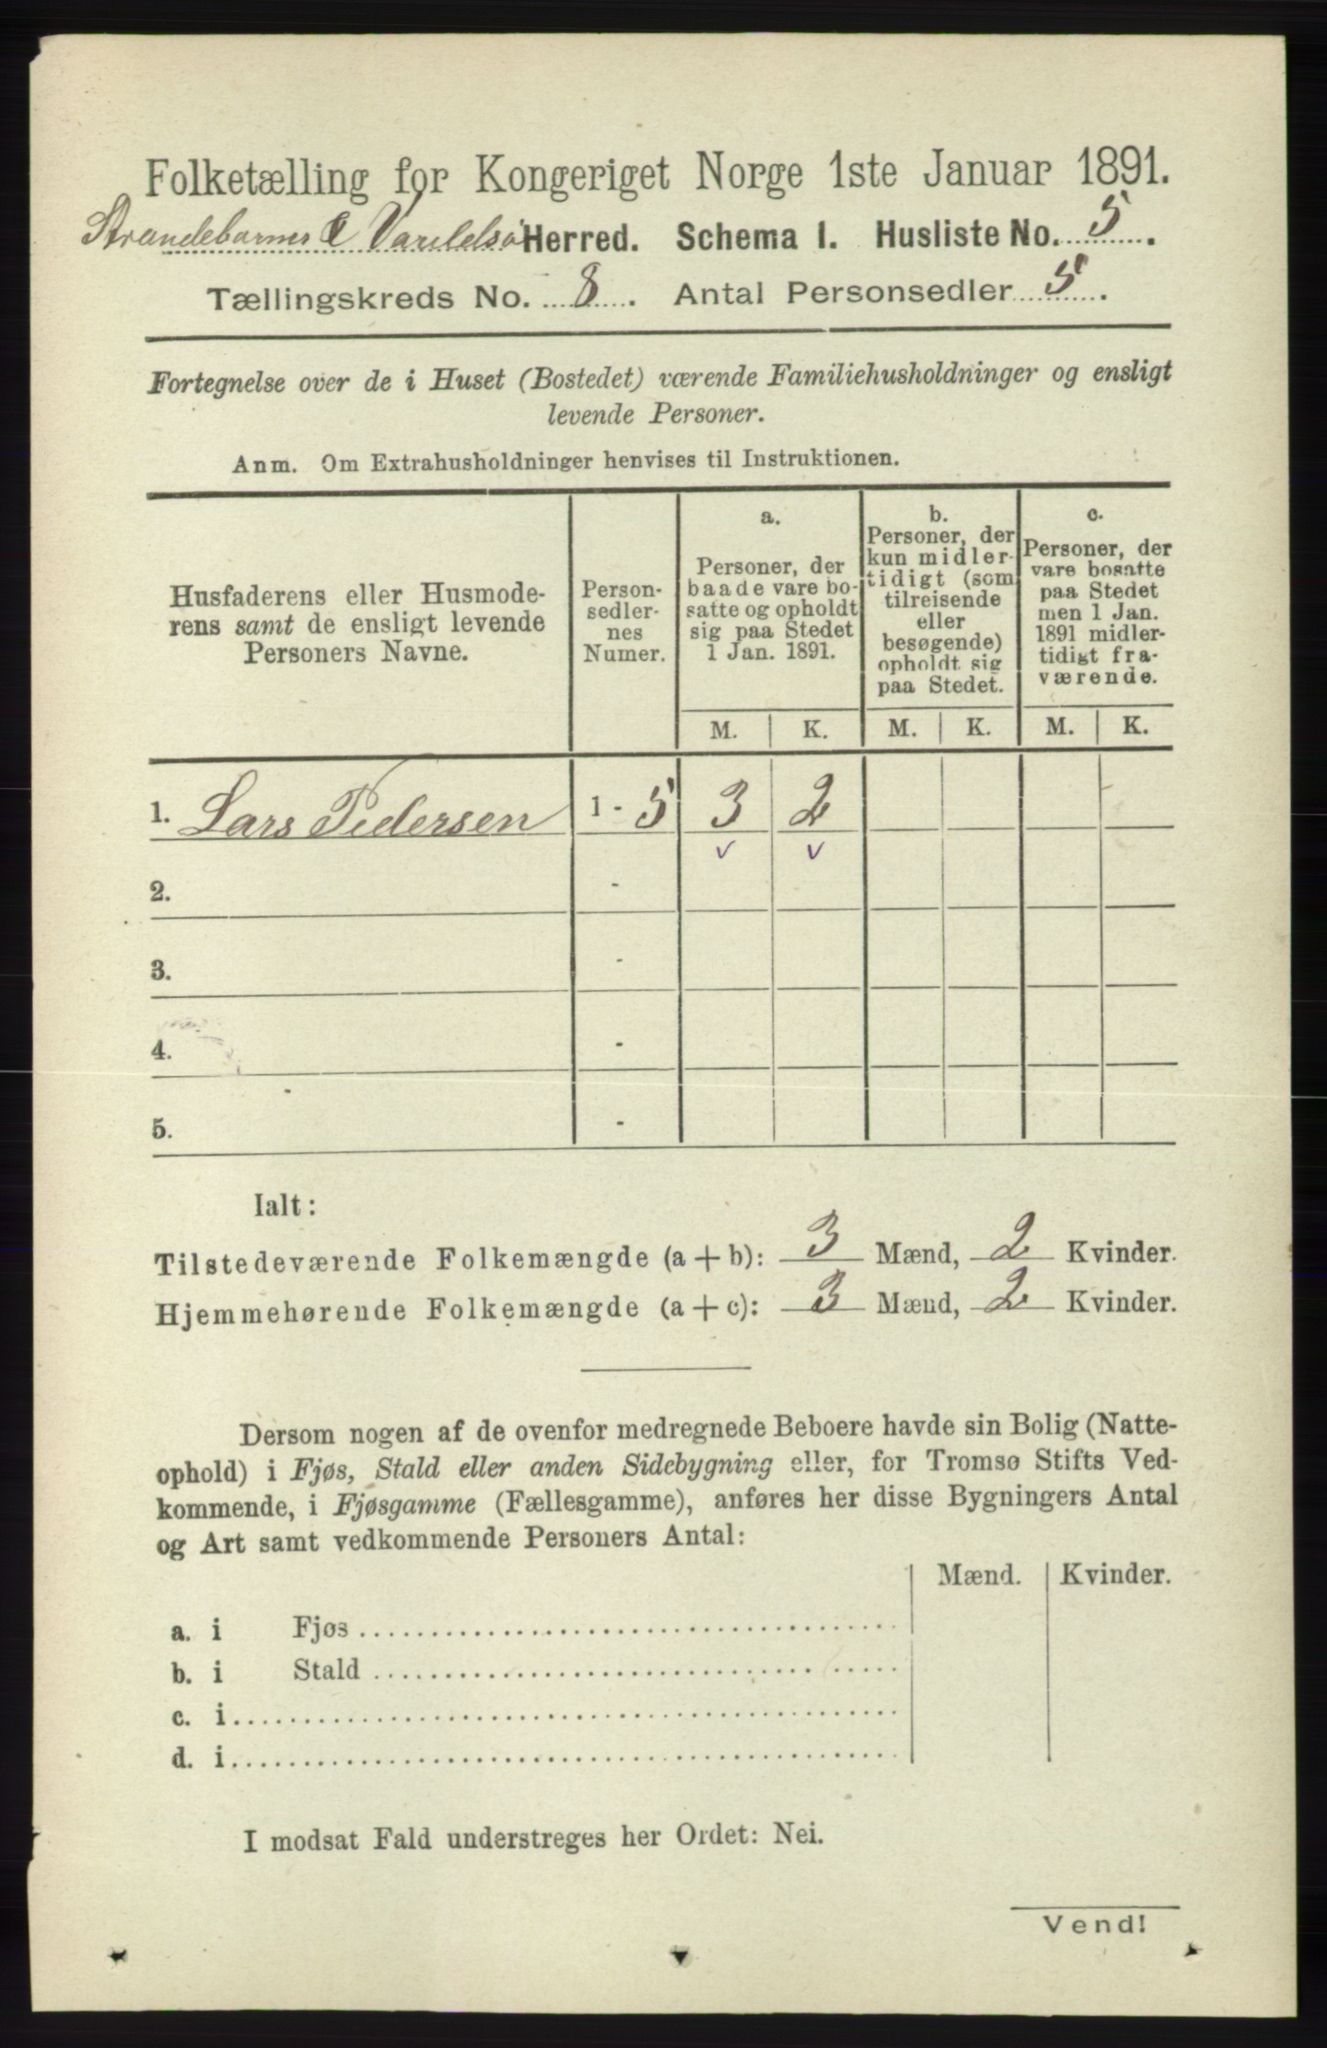 Folketælling for Kongeriget Norge 1ste Januar 1891.
Strandebarms & Varildsø Herred. Schema I. Husliste No. 5.
Tællingskreds No. 8. Antal Personsedler 5.
Fortegnelse over de i Huset (Bostedet) værende Familiehusholdninger og ensligt
levende Personer.
Anm. Om Extrahusholdninger henvises til Instruktionen.
Husfaderens eller Husmode-
rens samt de ensligt levende
Personers Navne.
Person-
sedler-
nes
Numer.
a.
Personer, der
baade vare bo-
satte og opholdt
sig paa Stedet
1 Jan. 1891.
b.
Personer, der
kun midler-
tidigt (som
tilreisende
eller
besøgende)
opholdt sig
paa Stedet.
c.
Personer, der
vare bosatte
paa Stedet
men 1 Jan.
1891 midler-
tidigt fra-
værende.
M. K. M. K. M. K.
1. Lars Pedersen 1 - 5 3 2
2. -
3. -
4. -
5. -
Ialt:
Tilstedeværende Folkemængde (a + b): 3 Mænd, 2 Kvinder.
Hjemmehørende Folkemængde (a + c): 3 Mænd, 2 Kvinder.
Dersom nogen af de ovenfor medregnede Beboere havde sin Bolig (Natte-
ophold) i Fjøs, Stald eller anden Sidebygning eller, for Tromsø Stifts Ved-
kommende, i Fjøsgamme (Fællesgamme), anføres her disse Bygningers Antal
og Art samt vedkommende Personers Antal:
Mænd. Kvinder.
a. i Fjøs
b. i Stald
c. i
d. i
I modsat Fald understreges her Ordet: Nei.
Vend!